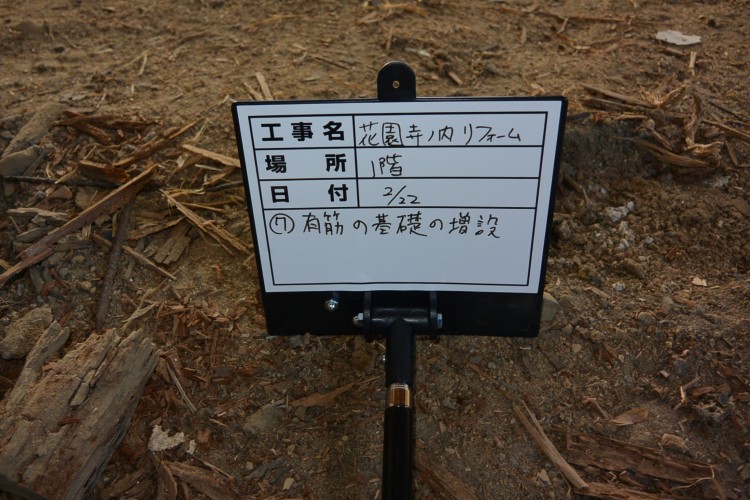 工事名 花園寺ノ内リフォーム
場所 1階
日付 2/22
⑦ 有筋の基礎の増設